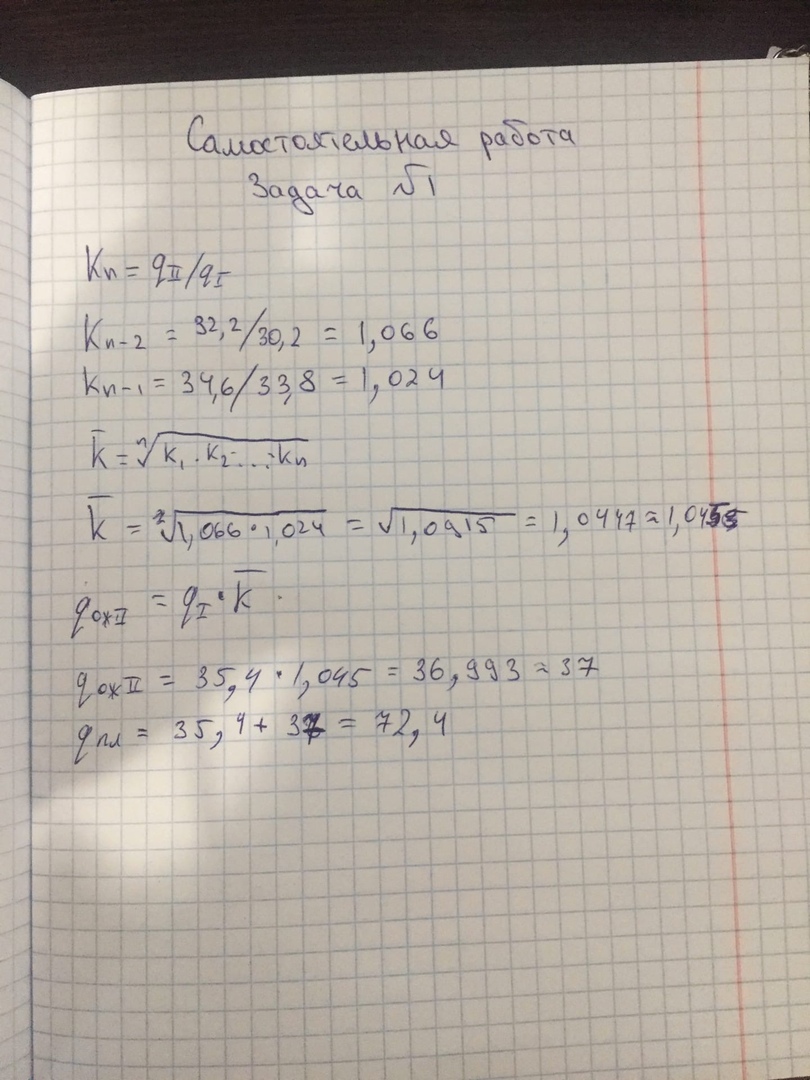 Самостоятельная работа
Задача №1
Kn = qII/qI
Kn-2 = 32,2/30,2 = 1,066
Kn-1 = 34,6/33,8 = 1,024
k̅ = ⁿ√k1 · k2 · ... · kn
k̅ = ²√1,066 · 1,024 = √1,0915 = 1,0447 ≈ 1,045
qожII = qI · k̅
qожII = 35,4 · 1,045 = 36,993 ≈ 37
qпл = 35,4 + 37 = 72,4